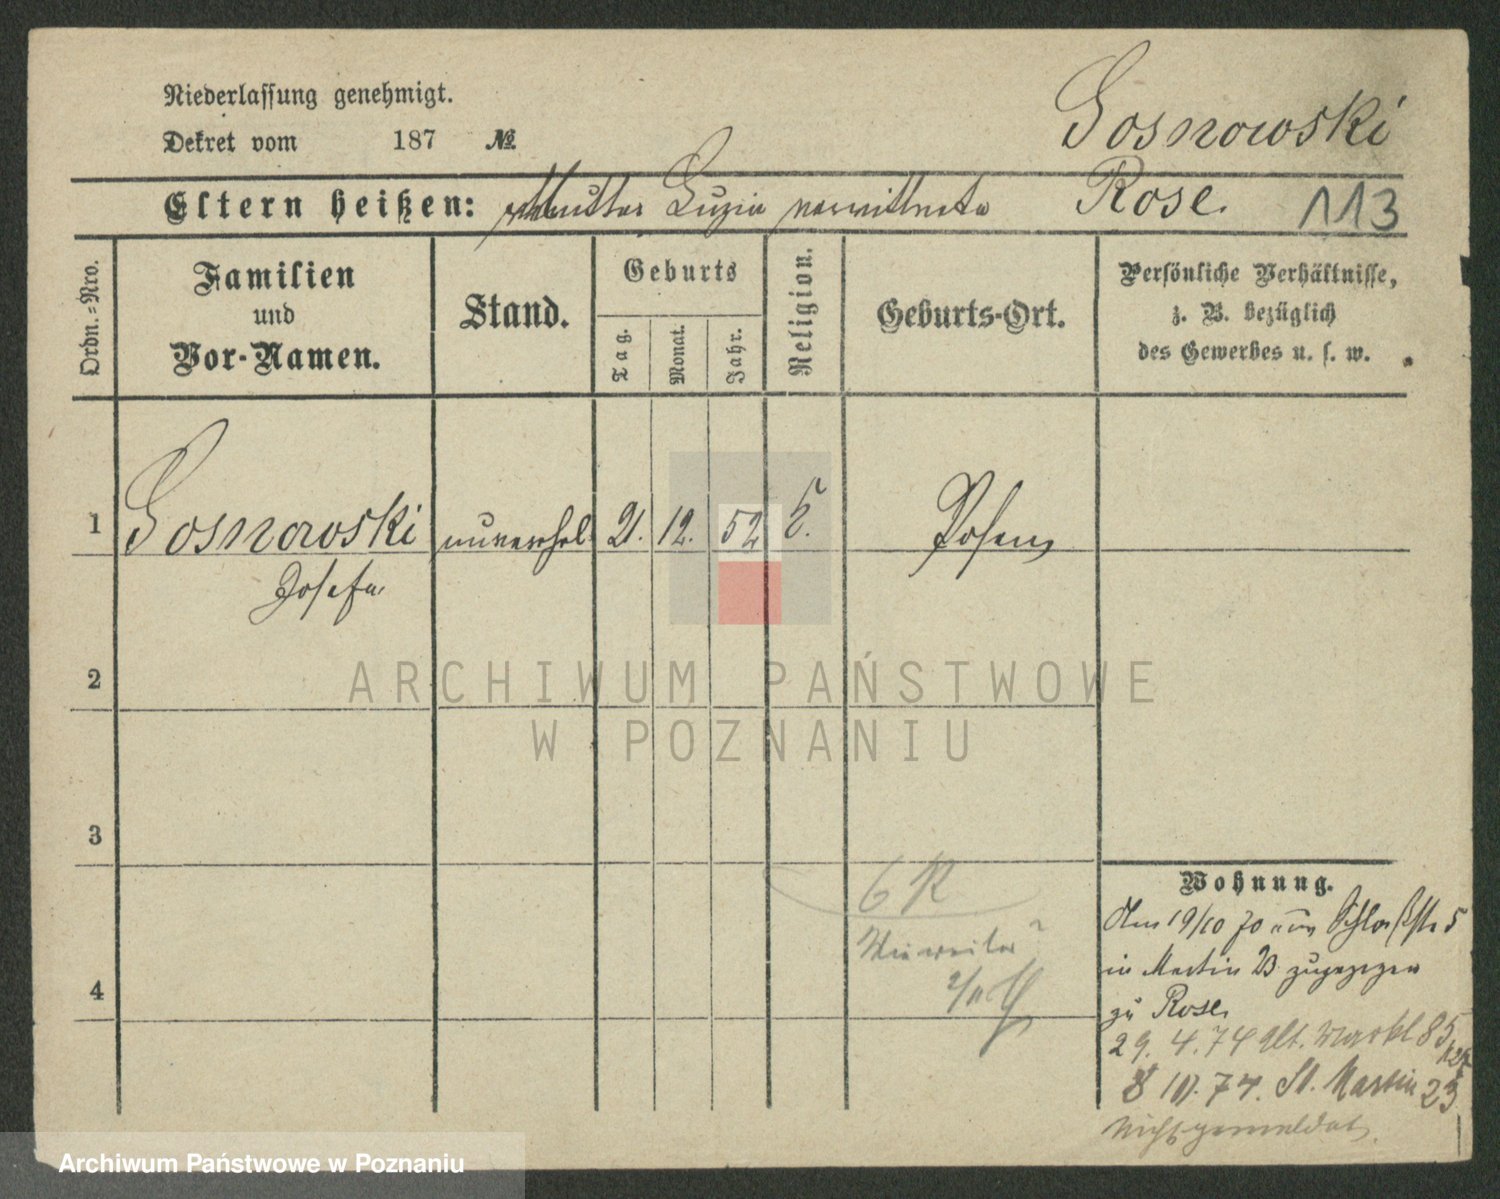 Niederlassung genehmigt.
Dekret vom 187 №
Gosnowski
Eltern heißen: Mutter Luzia verwittwete
Rose
113
Ordn.-Nro.
Familien
und
Vor-Namen.
Stand.
Geburts
Tag.
Monat.
Jahr.
Religion.
Geburts-Ort.
Persönliche Verhältnisse,
z. B. bezüglich
des Gewerbes u. s. w.
1 Gosnowski unverehel. 21. 12. 52 Posen
Josefa
2
ARCHIWUM PAŃSTWOWE
W POZNANIU
3
6 R
Wohnung.
19/10 70 Schloßstr 5
in Martin 23 zugezogen
zu Rose
4
29. 4. 74 Alt. Markt 85
8 10. 74. St. Martin 23
nicht gemeldet.
Archiwum Państwowe w Poznaniu